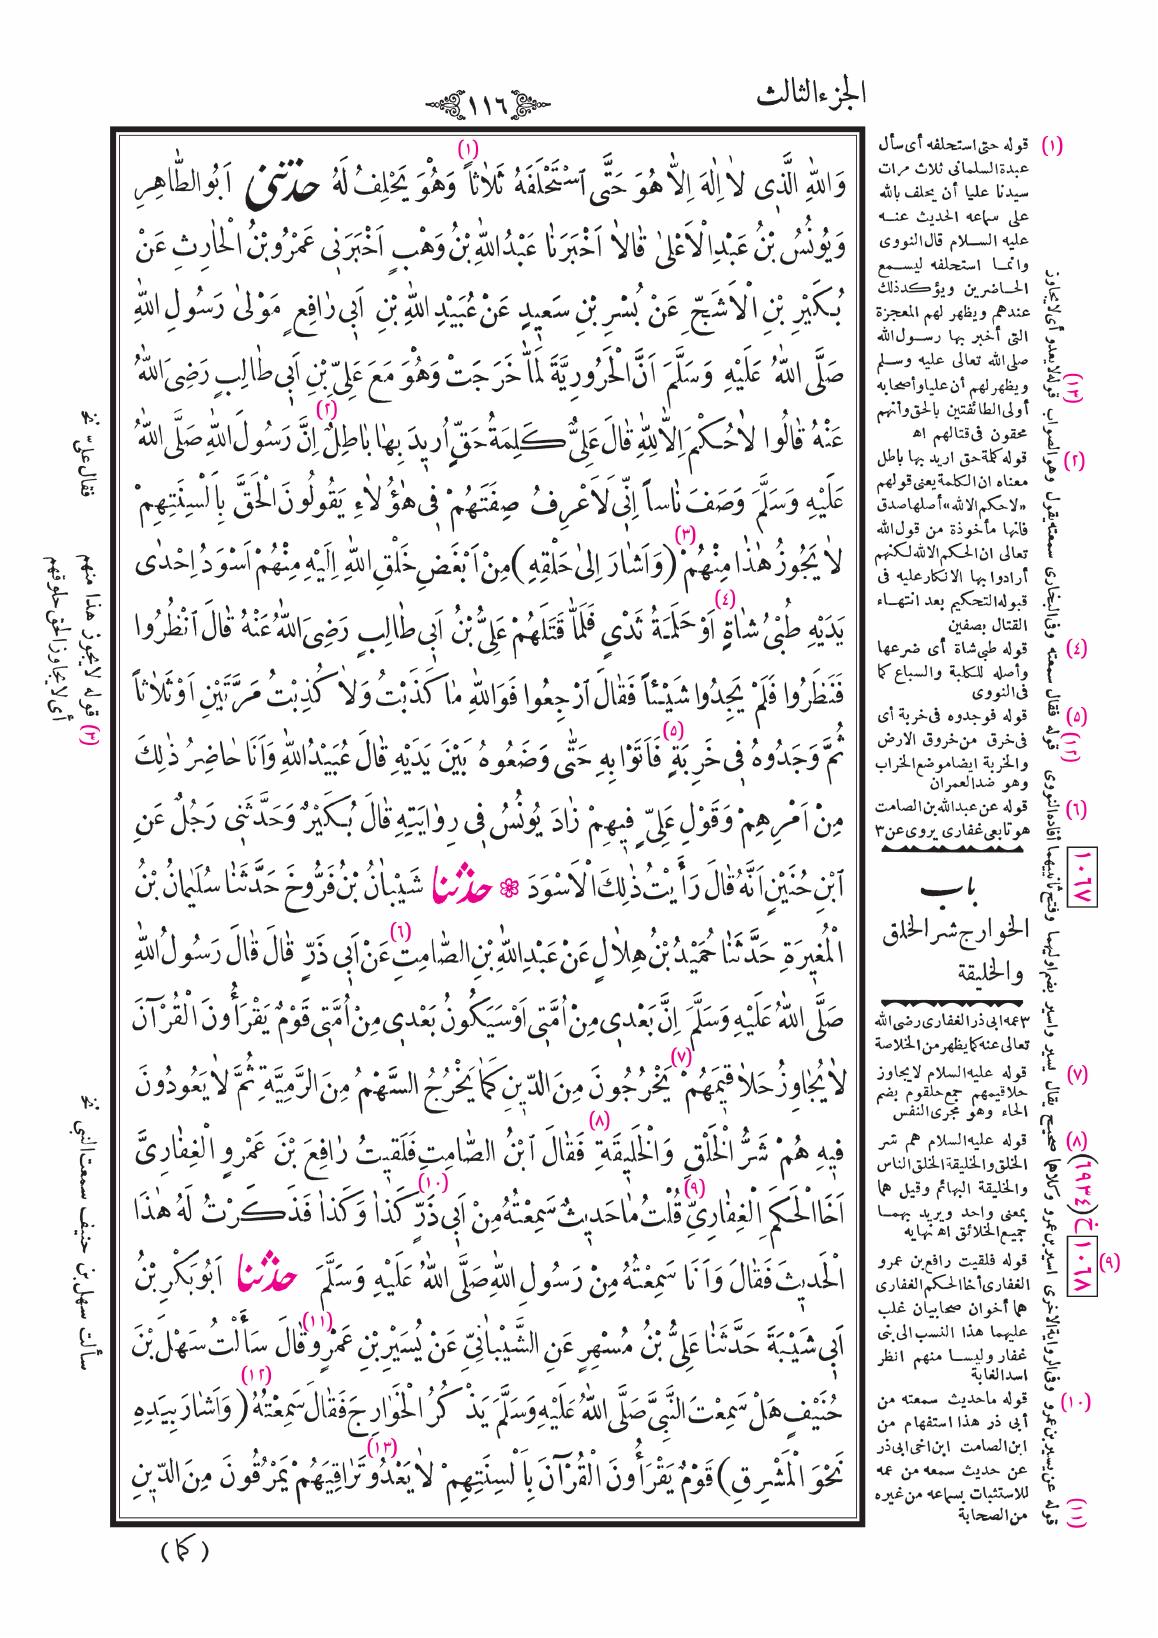 الجزء الثالث
١١٦
وَاللّٰهِ الَّذِى لاٰ اِلٰهَ اِلاّٰ هُوَ حَتَّى ٱسْتَحْلَفَهُ ثَلاٰثاً (١) وَهُوَ يَحْلِفُ لَهُ حدثنى اَبُو الطَّاهِرِ
وَيُونُسُ بْنُ عَبْدِ الْاَعْلىٰ قٰالاٰ اَخْبَرَنٰا عَبْدُ اللّٰهِ بْنُ وَهْبٍ اَخْبَرَنِى عَمْرُو بْنُ الْحٰارِثِ عَنْ
بُكَيْرِ بْنِ الْاَشَجِّ عَنْ بُسْرِ بْنِ سَعِيدٍ عَنْ عُبَيْدِ اللّٰهِ بْنِ اَبِى رٰافِعٍ مَوْلىٰ رَسُولِ اللّٰهِ
صَلَّى اللّٰهُ عَلَيْهِ وَسَلَّمَ اَنَّ الْحَرُورِيَّةَ لَمّٰا خَرَجَتْ وَهُوَ مَعَ عَلِىِّ بْنِ اَبِى طٰالِبٍ رَضِىَ اللّٰهُ
عَنْهُ قٰالُوا لاٰ حُكْمَ اِلاّٰ لِلّٰهِ قٰالَ عَلِىٌّ كَلِمَةُ حَقٍّ اُرِيدَ بِهٰا بٰاطِلٌ (٢) اِنَّ رَسُولَ اللّٰهِ صَلَّى اللّٰهُ
عَلَيْهِ وَسَلَّمَ وَصَفَ نٰاساً اِنِّى لَاَعْرِفُ صِفَتَهُمْ فِى هٰؤُلاٰءِ يَقُولُونَ الْحَقَّ بِاَلْسِنَتِهِمْ
لاٰ يَجُوزُ هٰذٰا مِنْهُمْ (٣) (وَاَشٰارَ اِلىٰ حَلْقِهِ) مِنْ اَبْغَضِ خَلْقِ اللّٰهِ اِلَيْهِ مِنْهُمْ اَسْوَدُ اِحْدٰى
يَدَيْهِ طُبْىُ شٰاةٍ (٤) اَوْ حَلَمَةُ ثَدْىٍ فَلَمّٰا قَتَلَهُمْ عَلِىُّ بْنُ اَبِى طٰالِبٍ رَضِىَ اللّٰهُ عَنْهُ قٰالَ ٱنْظُرُوا
فَنَظَرُوا فَلَمْ يَجِدُوا شَيْئاً فَقٰالَ ٱرْجِعُوا فَوَاللّٰهِ مٰا كَذَبْتُ وَلاٰ كُذِبْتُ مَرَّتَيْنِ اَوْ ثَلاٰثاً
ثُمَّ وَجَدُوهُ فِى خَرِبَةٍ (٥) فَاَتَوْا بِهِ حَتّٰى وَضَعُوهُ بَيْنَ يَدَيْهِ قٰالَ عُبَيْدُ اللّٰهِ وَاَنَا حٰاضِرُ ذٰلِكَ
مِنْ اَمْرِهِمْ وَقَوْلِ عَلِىٍّ فِيهِمْ زٰادَ يُونُسُ فِى رِوٰايَتِهِ قٰالَ بُكَيْرٌ وَحَدَّثَنِى رَجُلٌ عَنِ
ٱبْنِ حُنَيْنٍ اَنَّهُ قٰالَ رَأَيْتُ ذٰلِكَ الْاَسْوَدَ ❁ حدثنا شَيْبٰانُ بْنُ فَرُّوخَ حَدَّثَنٰا سُلَيْمٰانُ بْنُ
الْمُغِيرَةِ حَدَّثَنٰا حُمَيْدُ بْنُ هِلاٰلٍ عَنْ عَبْدِ اللّٰهِ بْنِ الصّٰامِتِ (٦) عَنْ اَبِى ذَرٍّ قٰالَ قٰالَ رَسُولُ اللّٰهِ
صَلَّى اللّٰهُ عَلَيْهِ وَسَلَّمَ اِنَّ بَعْدِى مِنْ اُمَّتِى اَوْ سَيَكُونُ بَعْدِى مِنْ اُمَّتِى قَوْمٌ يَقْرَأُونَ الْقُرْآنَ
لاٰ يُجٰاوِزُ حَلاٰقِيمَهُمْ (٧) يَخْرُجُونَ مِنَ الدِّينِ كَمٰا يَخْرُجُ السَّهْمُ مِنَ الرَّمِيَّةِ ثُمَّ لاٰ يَعُودُونَ
فِيهِ هُمْ شَرُّ الْخَلْقِ وَالْخَلِيقَةِ (٨) فَقٰالَ ٱبْنُ الصّٰامِتِ فَلَقِيتُ رٰافِعَ بْنَ عَمْرٍو الْغِفٰارِىَّ
اَخَا الْحَكَمِ الْغِفٰارِىِّ (٩) قُلْتُ مٰا حَدِيثٌ سَمِعْتُهُ مِنْ اَبِى ذَرٍّ (١٠) كَذٰا وَكَذٰا فَذَكَرْتُ لَهُ هٰذَا
الْحَدِيثَ فَقٰالَ وَاَنَا سَمِعْتُهُ مِنْ رَسُولِ اللّٰهِ صَلَّى اللّٰهُ عَلَيْهِ وَسَلَّمَ حدثنا اَبُو بَكْرِ بْنُ
اَبِى شَيْبَةَ حَدَّثَنٰا عَلِىُّ بْنُ مُسْهِرٍ عَنِ الشَّيْبٰانِىِّ عَنْ يُسَيْرِ بْنِ عَمْرٍو (١١) قٰالَ سَأَلْتُ سَهْلَ بْنَ
حُنَيْفٍ هَلْ سَمِعْتَ النَّبِىَّ صَلَّى اللّٰهُ عَلَيْهِ وَسَلَّمَ يَذْكُرُ الْخَوٰارِجَ فَقٰالَ سَمِعْتُهُ (١٢) (وَاَشٰارَ بِيَدِهِ
نَحْوَ الْمَشْرِقِ) قَوْمٌ يَقْرَأُونَ الْقُرْآنَ بِاَلْسِنَتِهِمْ لاٰ يَعْدُو (١٣) تَرٰاقِيَهُمْ يَمْرُقُونَ مِنَ الدِّينِ
(كما)
(١) قوله حتى استحلفه أى سأل
عبدة السلمانى ثلاث مرات
سيدنا عليا أن يحلف بالله
على سماعه الحديث عنه
عليه السلام قال النووى
وانما استحلفه ليسمع
الحاضرين ويؤكد ذلك
عندهم ويظهر لهم المعجزة
التى أخبر بها رسول الله
صلى الله تعالى عليه وسلم
ويظهر لهم أن عليا وأصحابه
أولى الطائفتين بالحق وأنهم
محقون فى قتالهم اه
(٢) قوله كلمة حق اريد بها باطل
معناه ان الكلمة يعنى قولهم
«لا حكم الا لله» أصلها صدق
فانها مأخوذة من قول الله
تعالى ان الحكم الا لله لكنهم
أرادوا بها الانكار عليه فى
قبوله التحكيم بعد انتهاء
القتال بصفين
(٤) قوله طبى شاة أى ضرعها
وأصله للكلبة والسباع كما
فى النووى
(٥) قوله فوجدوه فى خربة أى
فى خرق من خروق الارض
والخربة ايضا موضع الخراب
وهو ضد العمران
(٦) قوله عن عبدالله بن الصامت
هو تابعى غفارى يروى عن ٣
١٠٦٧
باب
الخوارج شر الخلق
والخليقة
٣ عمه ابى ذر الغفارى رضى الله
تعالى عنه كما يظهر من الخلاصة
(٧) قوله عليه السلام لا يجاوز
حلاقيمهم جمع حلقوم بضم
الحاء وهو مجرى النفس
(٨) قوله عليه السلام هم شر
الخلق والخليقة الخلق الناس
والخليقة البهائم وقيل هما
بمعنى واحد ويريد بهما
جميع الخلائق اه نهايه
خ (٦٩٣٤)
١٠٦٨
(٩) قوله فلقيت رافع بن عمرو
الغفارى أخا الحكم الغفارى
هما أخوان صحابيان غلب
عليهما هذا النسب الى بنى
غفار وليسا منهم انظر
اسد الغابة
(١٠) قوله ما حديث سمعته من
أبى ذر هذا استفهام من
ابن الصامت ابن اخى ابى ذر
عن حديث سمعه من عمه
للاستثبات بسماعه من غيره
من الصحابة
(١١) قوله عن يسير بن عمرو وفى الرواية الاخرى اسير بن عمرو وكلاهما صحيح يقال يسير واسير بضم اوليهما وفتح ثانيهما أفاده النووى
(١٢) قوله فقال سمعته وفى البخارى سمعته يقول وهو الصواب
(١٣) قوله لا يعدو أى لا يجاوز
فقال علىّ نخ
(٣) قوله لا يجوز هذا منهم
أى لا يجاوز الحق حلوقهم
سألت سهل بن حنيف سمعت النبى نخ